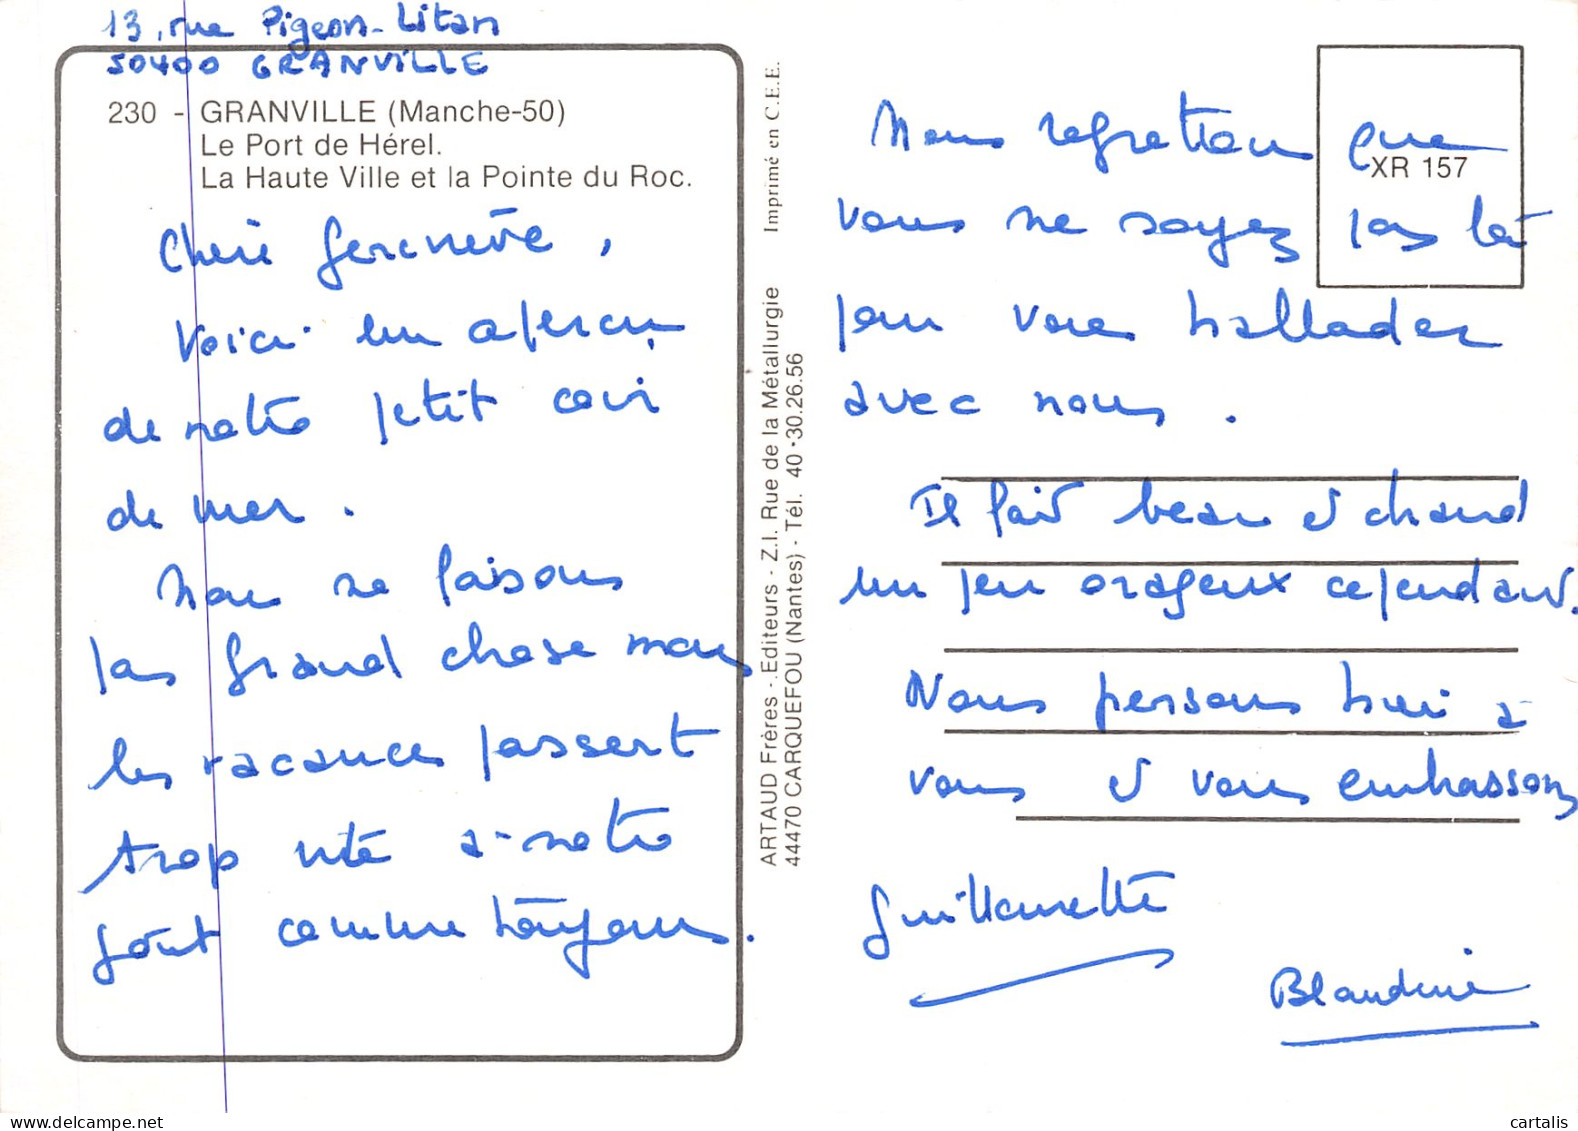 13, rue Pigeon-Litan
50400 GRANVILLE
230 - GRANVILLE (Manche-50)
Le Port de Hérel.
La Haute Ville et la Pointe du Roc.
Chère Geneviève,
Voici un aperçu
de notre petit coin
de mer.
Nous ne faisons
pas grand chose mais
les vacances passent
trop vite à notre
goût comme toujours.
Imprimé en C.E.E.
ARTAUD Frères - Editeurs - Z.I. Rue de la Métallurgie
44470 CARQUEFOU (Nantes) - Tél. 40 · 30.26.56
XR 157
Nous regrettons que
vous ne soyez pas là
pour vous ballader
avec nous.
Il fait beau et chaud
un peu orageux cependant.
Nous pensons bien à
vous et vous embrassons
Guillemette
Blandine
cartalis
delcampe.net